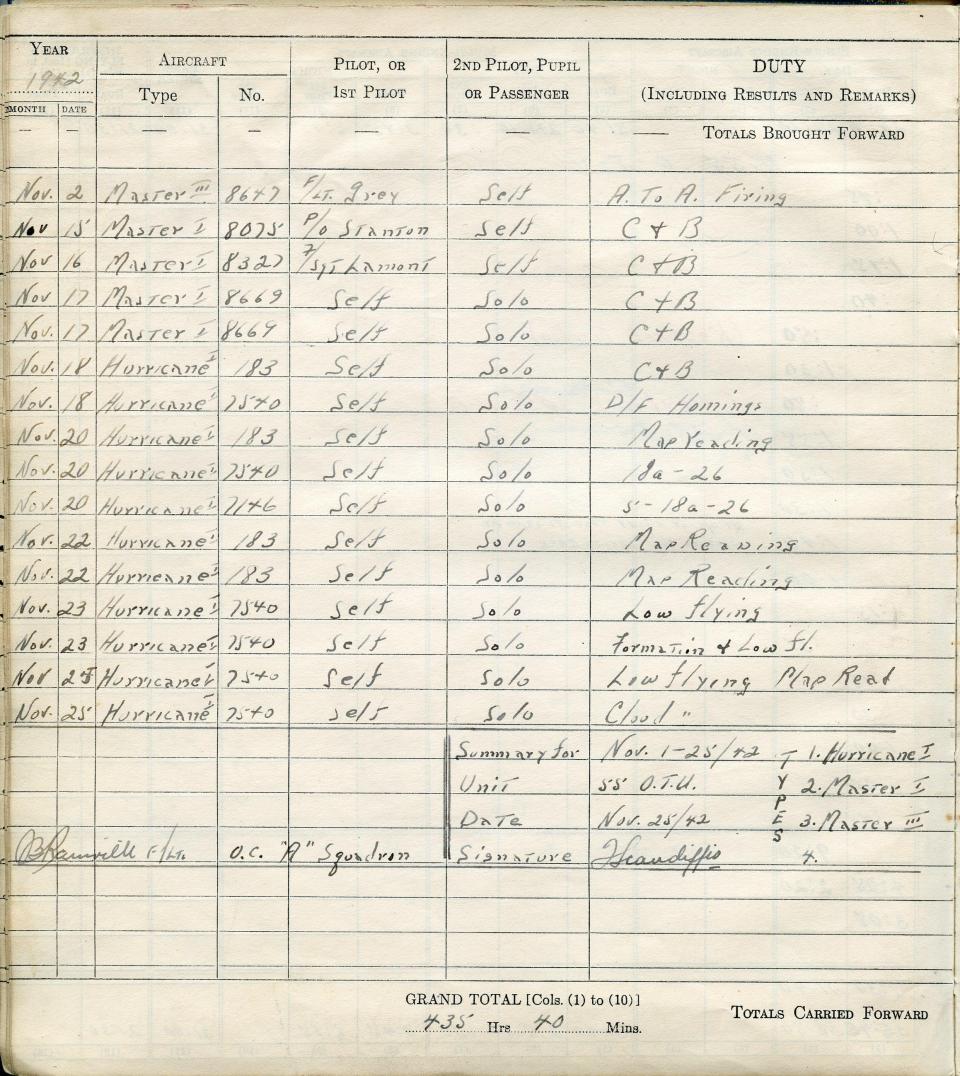 YEAR AIRCRAFT PILOT, OR 2ND PILOT, PUPIL DUTY
1942 Type No. 1ST PILOT OR PASSENGER (INCLUDING RESULTS AND REMARKS)
MONTH DATE
— — — — — — TOTALS BROUGHT FORWARD
Nov. 2 Master III 8647 F/Lt. Grey Self A. To A. Firing
Nov 15 Master I 8075 P/O Stanton Self C & B
Nov 16 Master I 8327 F/Sgt Lamont Self C & B
Nov 17 Master I 8669 Self Solo C & B
Nov. 17 Master I 8669 Self Solo C & B
Nov. 18 Hurricane I 183 Self Solo C & B
Nov. 18 Hurricane I 7540 Self Solo D/F Homings
Nov. 20 Hurricane I 183 Self Solo Map reading
Nov. 20 Hurricane I 7540 Self Solo 18a - 26
Nov. 20 Hurricane I 7146 Self Solo 5 - 18a - 26
Nov. 22 Hurricane I 183 Self Solo Map Reading
Nov. 22 Hurricane I 183 Self Solo Map Reading
Nov. 23 Hurricane I 7540 Self Solo Low flying
Nov. 23 Hurricane I 7540 Self Solo Formation & Low Fl.
Nov Hurricane I 7540 Self Solo Low flying Map Read
Nov. 25 Hurricane I 7540 Self Solo Cloud "
Summary for Nov. 1-25/42 TYPES 1. Hurricane I
Unit 55 O.T.U. 2. Master I
Date Nov. 25/42 3. Master III
F/Lt. O.C. "A" Squadron Signature Scandiffio 4.
GRAND TOTAL [Cols. (1) to (10)] TOTALS CARRIED FORWARD
435 Hrs 40 Mins.